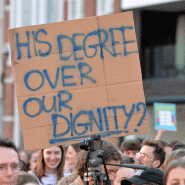 HIS DEGREE
OVER
OUR
DIGNITY?